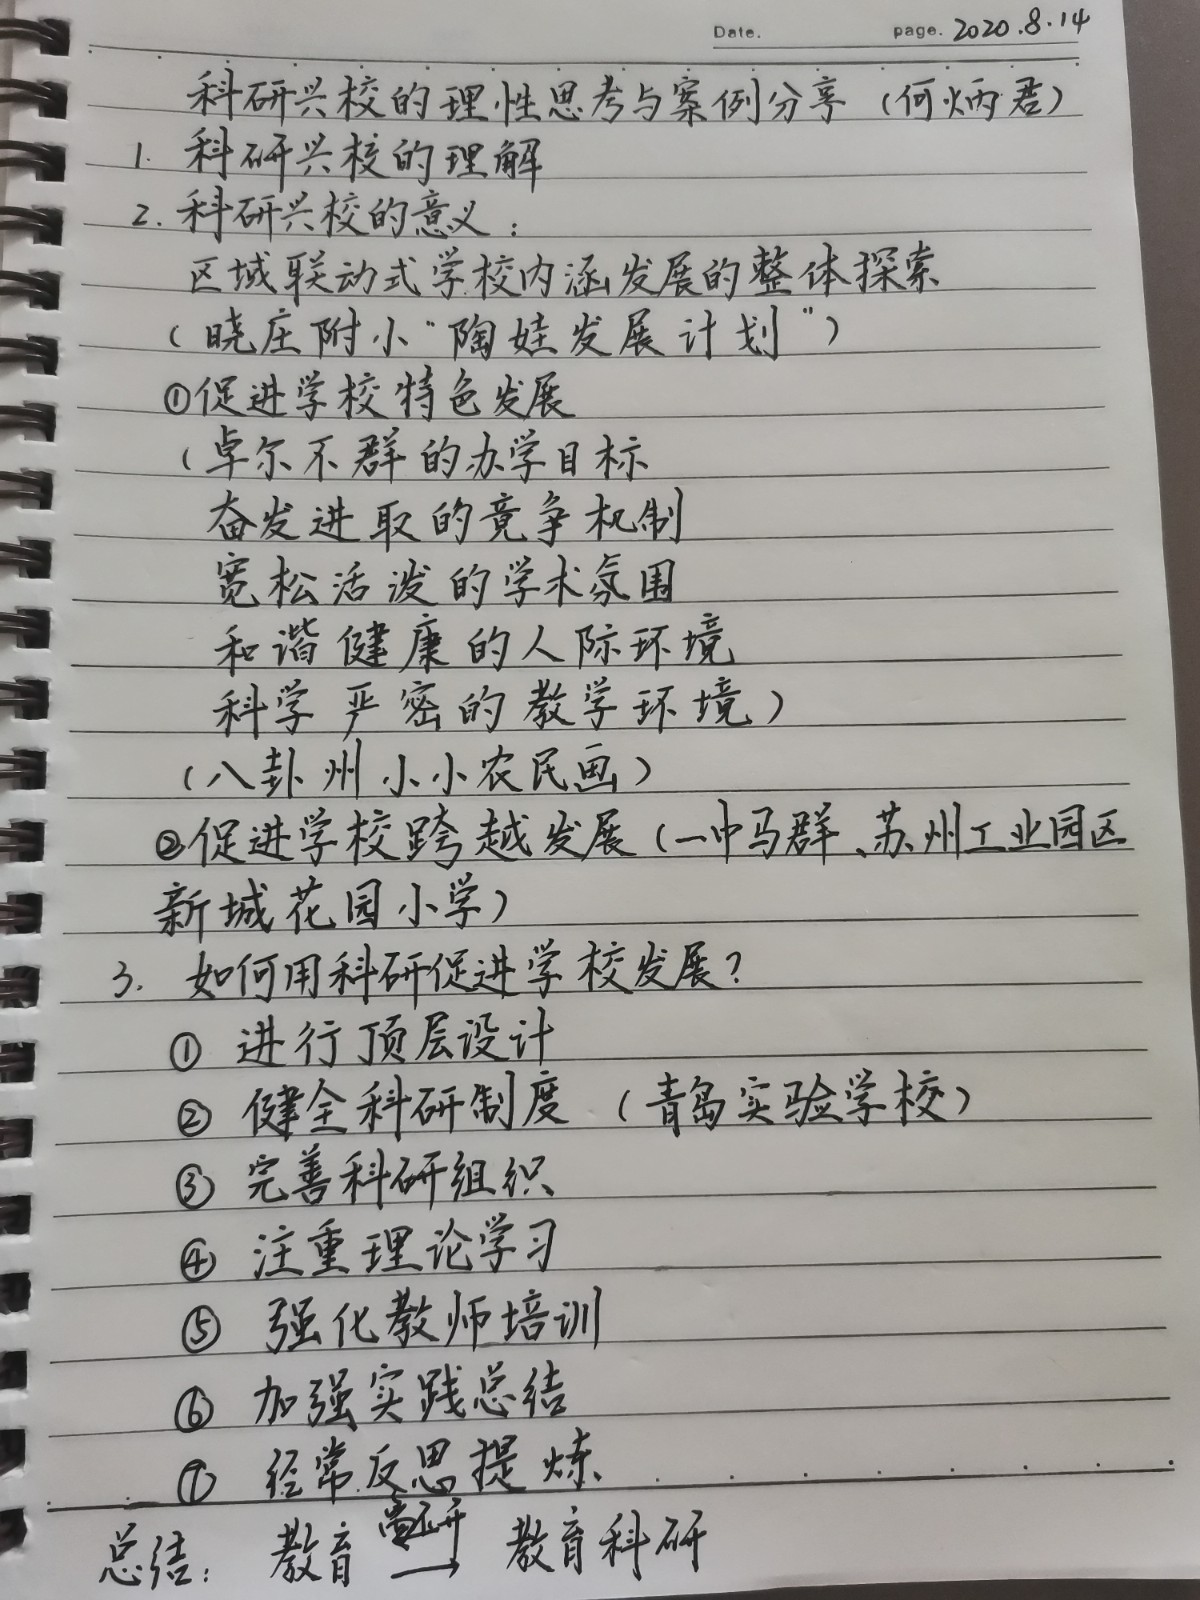 Date. page. 2020.8.14
科研兴校的理性思考与案例分享（何炳君）
1. 科研兴校的理解
2. 科研兴校的意义：
区域联动式学校内涵发展的整体探索
（晓庄附小“陶娃发展计划”）
①促进学校特色发展
（卓尔不群的办学目标
奋发进取的竞争机制
宽松活泼的学术氛围
和谐健康的人际环境
科学严密的教学环境）
（八卦州小小农民画）
②促进学校跨越发展（一中马群、苏州工业园区
新城花园小学）
3. 如何用科研促进学校发展？
① 进行顶层设计
② 健全科研制度（青岛实验学校）
③ 完善科研组织
④ 注重理论学习
⑤ 强化教师培训
⑥ 加强实践总结
⑦ 经常反思提炼
总结：教育 → 教育科研